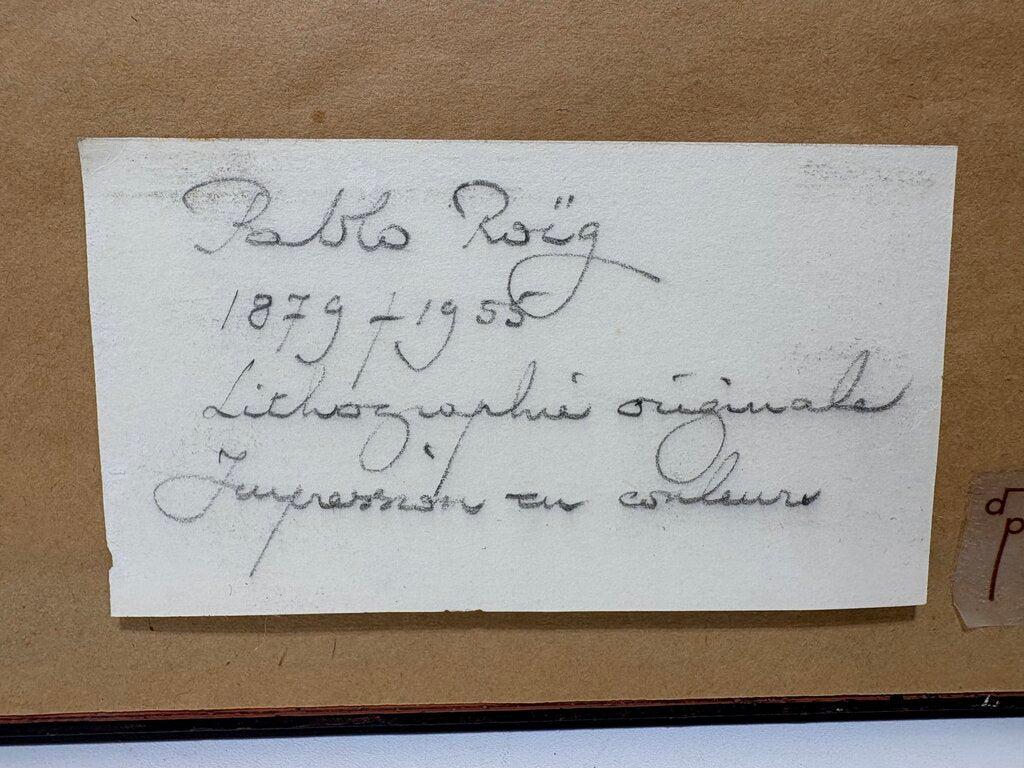 Pablo Roïg
1879 † 1955
Lithographie originale
Impression en couleurs
dp